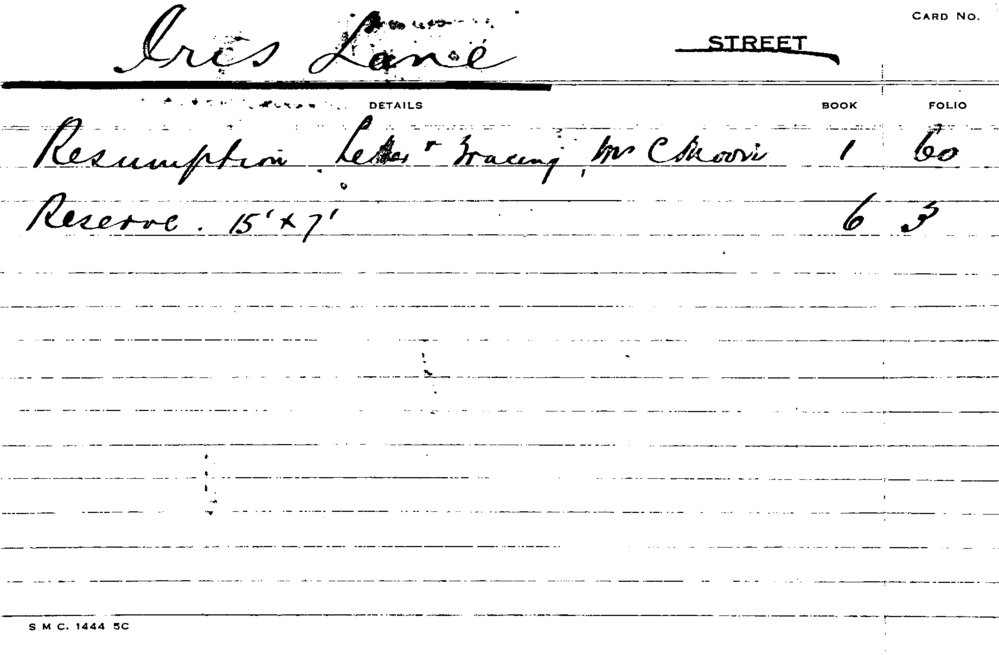 CARD NO.
Iris Lane STREET
DETAILS BOOK FOLIO
Resumption Letter & Tracing, Mr C Moore 1 60
Reserve. 15' x 7' 6 3
S M C. 1444 5C